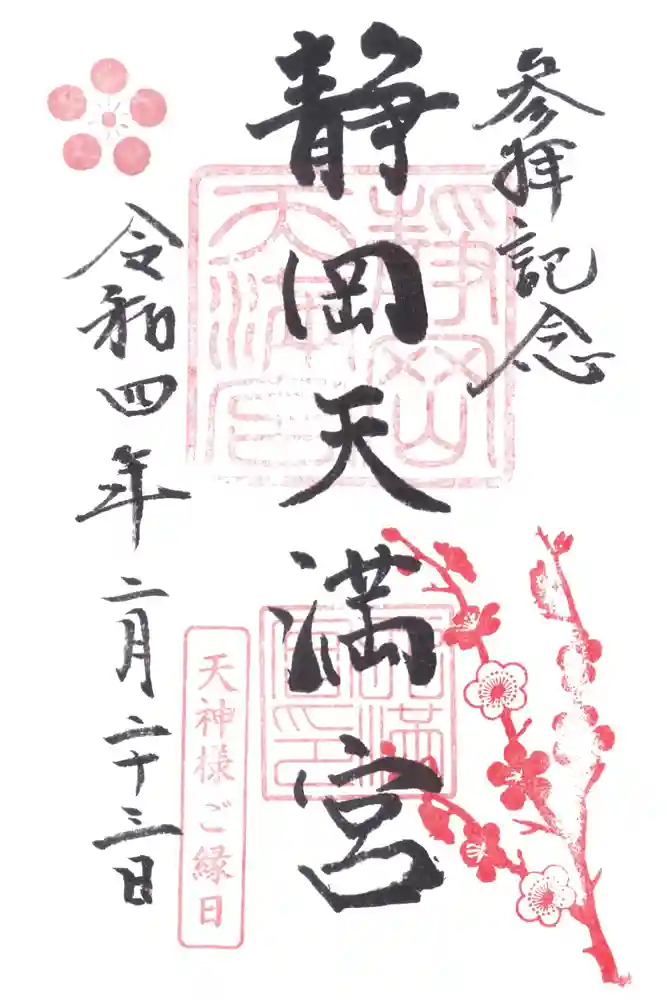 参拝記念
静岡天満宮
静岡
天満宮
天神様ご縁日
令和四年二月二十三日